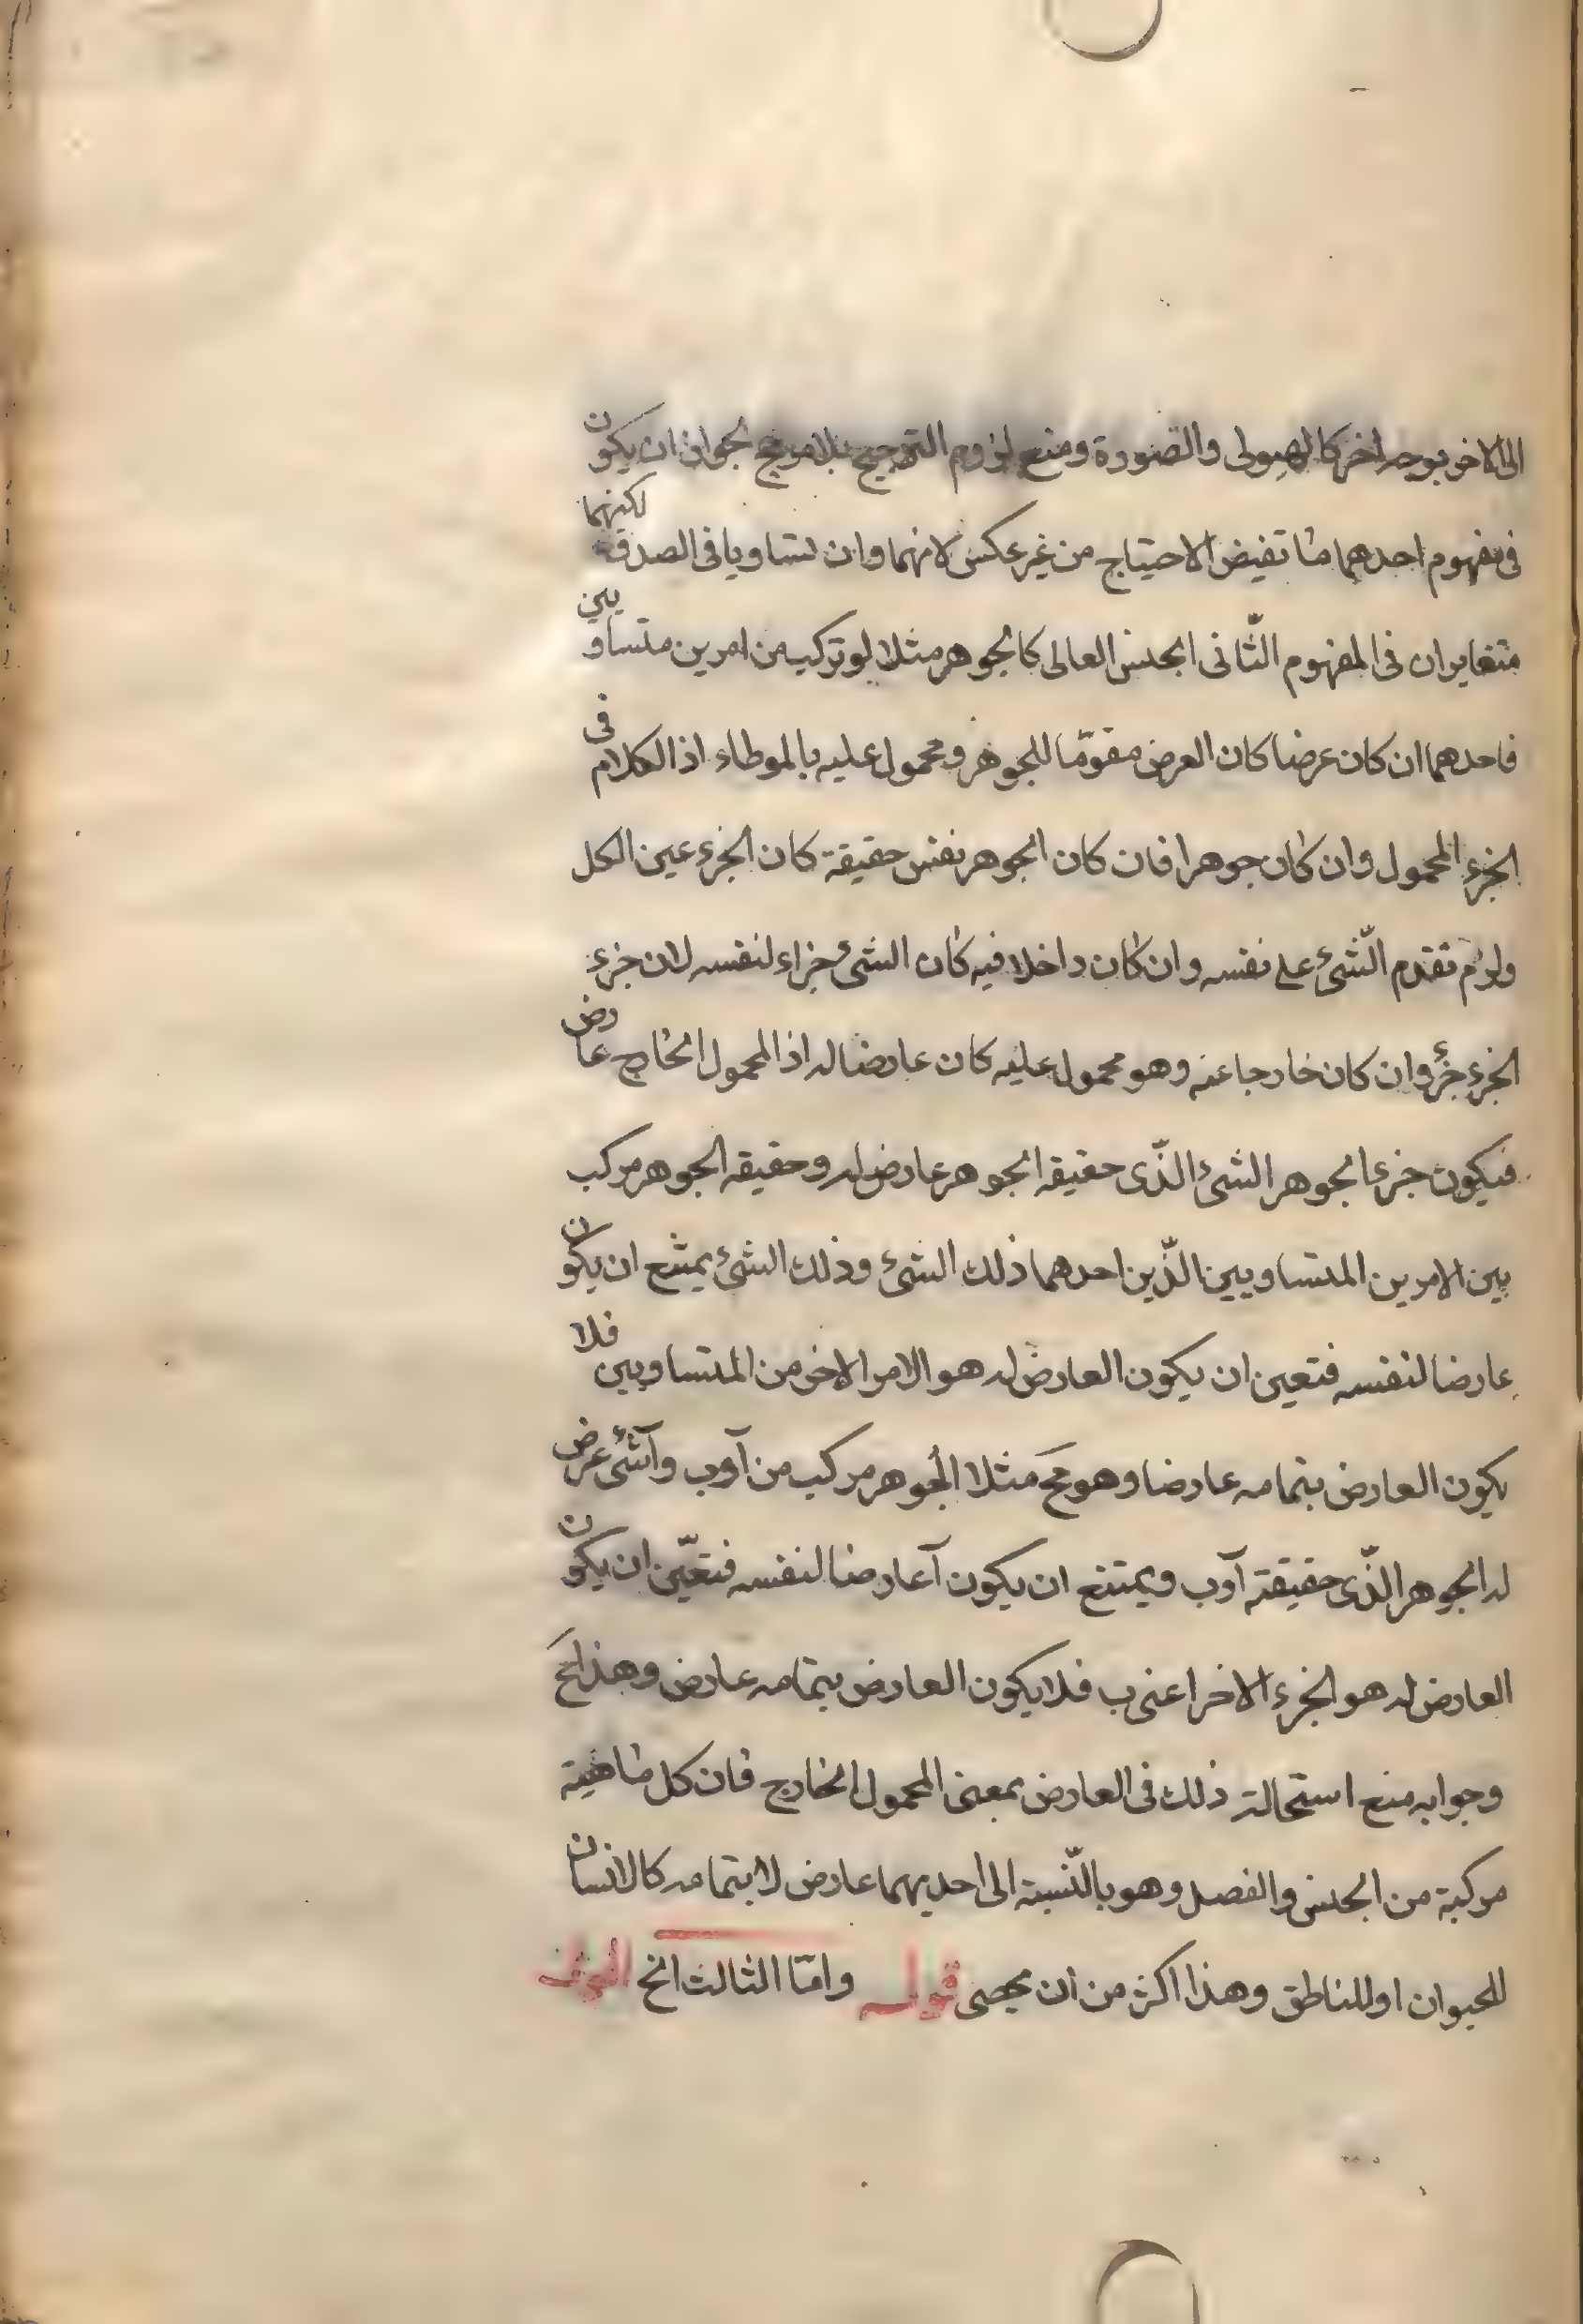 الى الاخر بوجه اخر كالهيولى والصورة ومنع لزوم الترجيح بلا مرجح لجواز ان يكون
فى مفهوم احدهما ما تفيض الاحتياج من غير عكس لانهما وان تساويا فى الصدق لكنهما
متغايران فى المفهوم الثّانى الجنس العالى كالجوهر مثلا لو تركب من امرين متساويين
فاحدهما ان كان عرضا كان العرض مقوّما للجوهر ومحمول عليه بالموطاء اذ الكلام فى
الجزء المحمول وان كان جوهرا فان كان الجوهر نفس حقيقة كان الجزء عين الكل
ولزم تقدم الشّئ على نفسه وان كان داخلا فيه كان الشئ جزاء لنفسه لان جزء
الجزء جزؤ وان كان خارجا عنه وهو محمول عليه كان عارضا له اذ المحمول الخارج عارض
فيكون جزء الجوهر الشئ الّذى حقيقة الجوهر عارض له وحقيقة الجوهر مركب
بين الامرين المتساويين الذّين احدهما ذلك الشئ وذلك الشئ يمتنع ان يكون
عارضا لنفسه فتعين ان يكون العارض له هو الامر الاخر من المتساويين فلا
يكون العارض بتمامه عارضا وهو مح مثلا الجوهر مركب من آ وب وآ شئ عرض
له الجوهر الذّى حقيقته آ وب ويمتنع ان يكون آ عارضا لنفسه فتعيّن ان يكون
العارض له هو الجزء الاخر اعنى ب فلا يكون العارض بتمامه عارض وهذا مح
وجوابه منع استحالة ذلك فى العارض بمعنى المحمول الخارج فان كل ماهية
مركبة من الجنس والفصل وهو بالنّسبة الى احديهما عارض لا بتمامه كالانسان
للحيوان او للناطق وهذا اكثر من ان يحصى قوله وامّا الثالث الخ